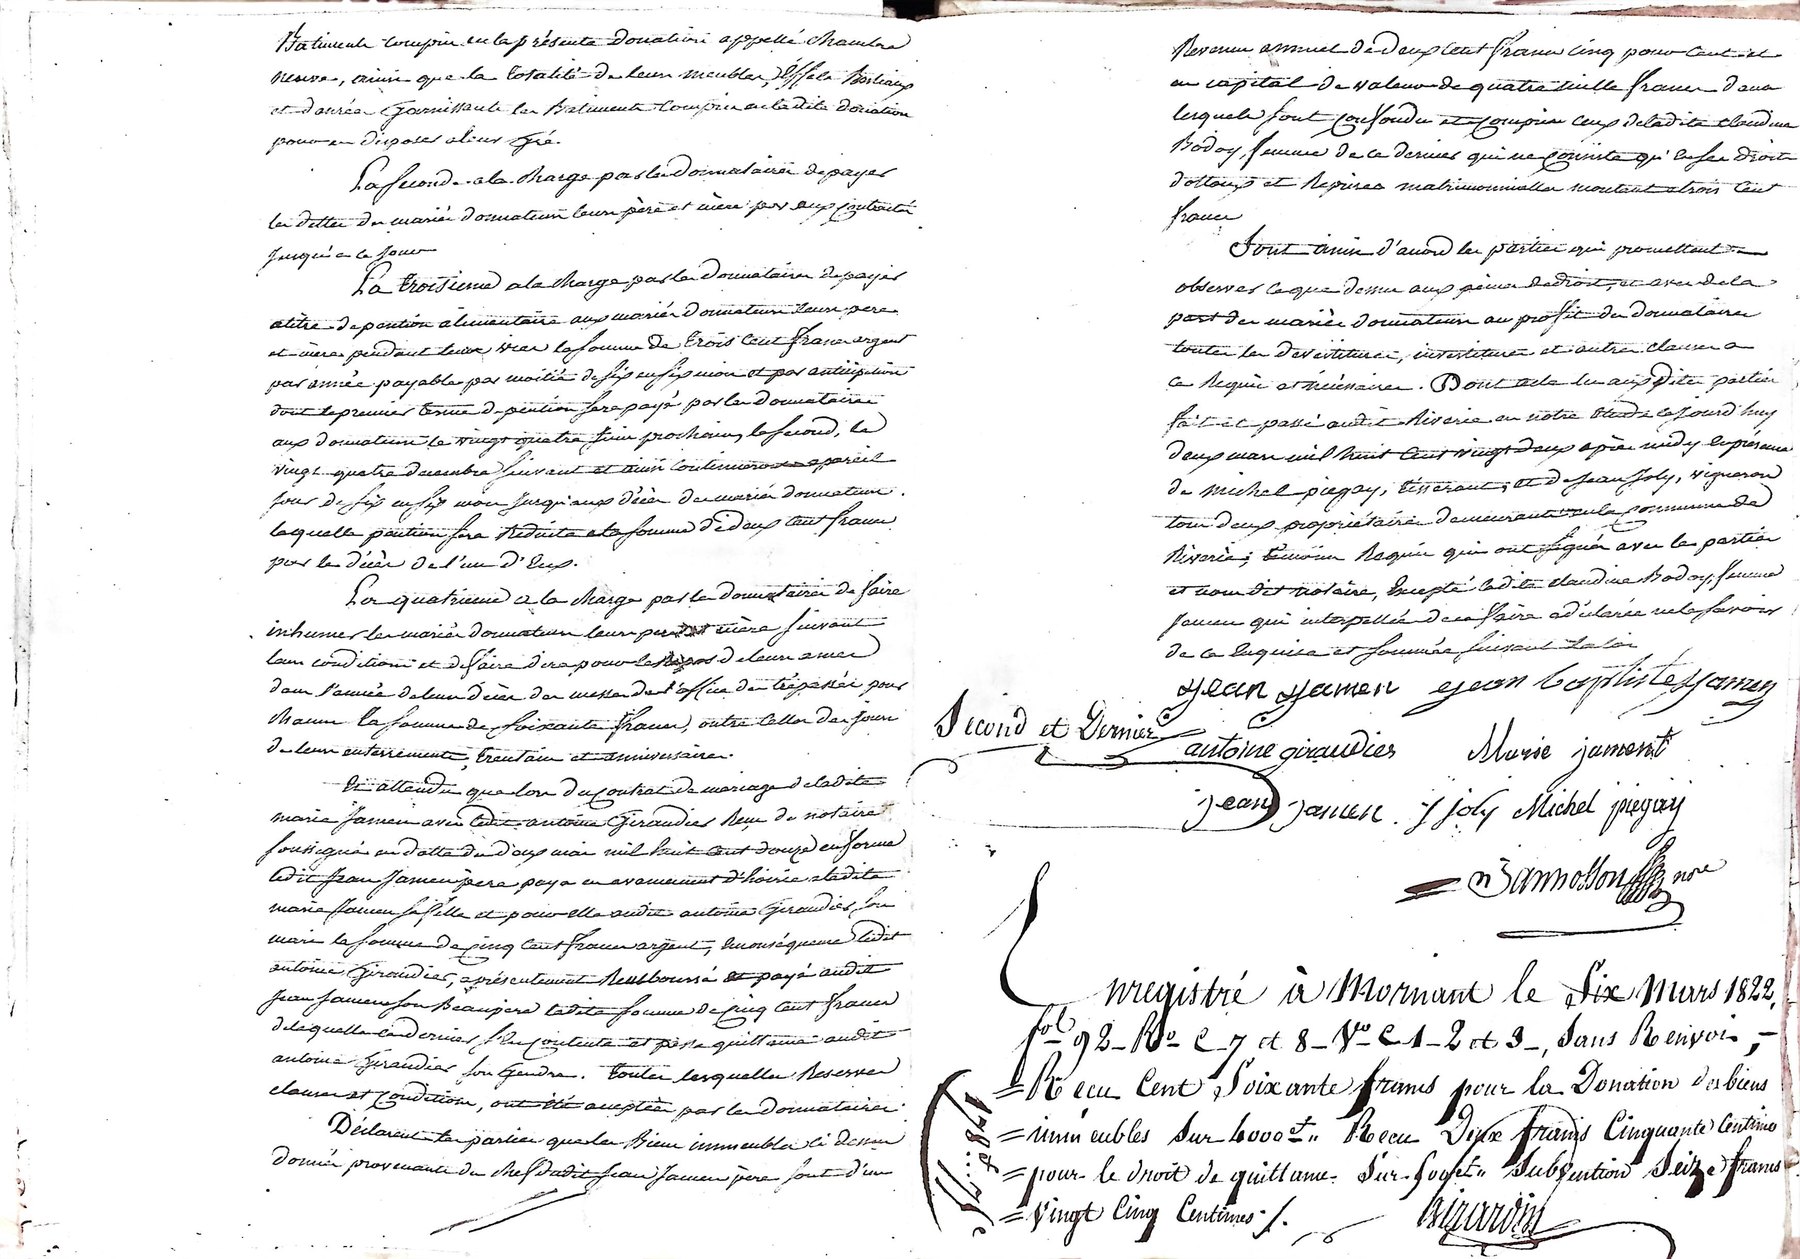 Batiments compris en la présente donation appellé chambre
neuve, ainsi que la totalité de leurs meubles, effets Bestiaux
et danrées Garnissants les Batiments compris en ladite donation
pour en disposer à leur Gré.
La seconde à la charge par les donnataires de payer
les dettes des mariés donnateurs leurs père et mère par eux contractés
jusqu'à ce jour
La troisième à la charge par les donnataires de payer
à titre de pention alimentaire aux mariés donnateurs leurs pere
et mère pendant leurs vies la somme de trois cent francs argent
par année payable par moitié de six en six mois et par anticipation
dont le premier terme de pention sera payé par les donnataires
aux donnateurs le vingt quatre juin prochain, le second, le
vingt quatre decembre suivant et ainsi continuera a pareil
jour de six en six mois jusqu'aux décès des mariés donnateurs.
laquelle pention sera réduite à la somme de deux cent francs
par le décès de l'un d'Eux.
La quatrieme a la charge par les donnataires de faire
inhumer les mariés donnateurs leurs pere et mère suivant
leurs conditions et de faire dire pour le repos de leurs ames
dans l'année de leurs décès des messes de l'office des trépassés pour
chacun la somme de soixante francs, outre celles des jours
de leurs enterrements, trentain et anniversaire.
Et attendu que lors du contrat de mariage de ladite
marie Jamen avec ledit antoine Giraudier Reçu du notaire
soussigné en datte du deux mai mil huit cent douze en forme
ledit Jean Jamen père paya en avancement d'hoirie à ladite
marie Jamen sa fille et pour elle audit antoine Giraudier, son
mari la somme de cinq cent francs argent, en conséquence ledit
antoine Giraudier, a présentement Remboursé et payé audit
Jean Jamen son Beaupere ladite somme de cinq cent francs
de laquelle ce dernier s'en contente et passe quittance audit
antoine Giraudier son Gendre. toutes lesquelles Reserves
clauses et conditions, ont été acceptées par les donnataires
Déclarent les parties que les Biens immeubles ci dessus
donnés provenants du chef dudit Jean Jamen père sont d'un
Revenu annuel de deux cent francs cinq pour cent et
en capital de valeur de quatre mille francs dans
lesquels sont confondu et compris ceux de ladite claudine
Bodoy, femme de ce dernier qui ne consiste qu'en ses droits
dottaux et Reprises matrimonnialles montant à trois cent
francs
Sont ainsi d'accord les parties qui promettent
observer ce que dessus aux peines de droit, et avec de la
part des mariés donnateurs au profit des donnataires
toutes les devestitures, investitures et autres clauses a
ce Requis et nécessaires. Dont acte lu auxdites parties
fait et passé audit Riverie en notre Etude cejourd'huy
deux mars mil huit cent vingt deux après midy en présence
de michel piegay, tisserant, et de Jean Joly, vigneron
tous deux propriétaires demeurants en la commune de
Riverie; témoins Requis qui ont signés avec les parties
et nous dit notaire, Excepté ladite claudine Bodoy, femme
Jamen qui interpellée de ce faire a déclarée ne le savoir
de ce Enquise et sommée suivant la loi
jean jamen jean baptiste jamen
Second et Dernier
antoine giraudier Marie jament
jean jamen. j joly Michel piegay
nore
Enregistré à Mornant le Six Mars 1822,
fol 92 Ro C 7 et 8 Vo C 1 2 et 3, Sans Renvoi,
= Recu Cent Soixante francs pour la Donation des biens
= immeubles Sur 4000 f. Recu Deux francs Cinquante Centimes
= pour le droit de quittance Sur 500 f. Subvention Seize francs
= vingt Cinq Centimes /.
178 f. 75 c
Girardin